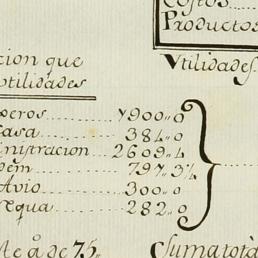 Costos
Productos
cion que
utilidades
Vtilidades
peros....... 7900,, 0
Casa........ 384,, 0
inistracion... 2609,, 4
dem........ 797,, 3½
Avio........ 300,, 0
requa....... 282,, 0
de 75,,
Suma tota